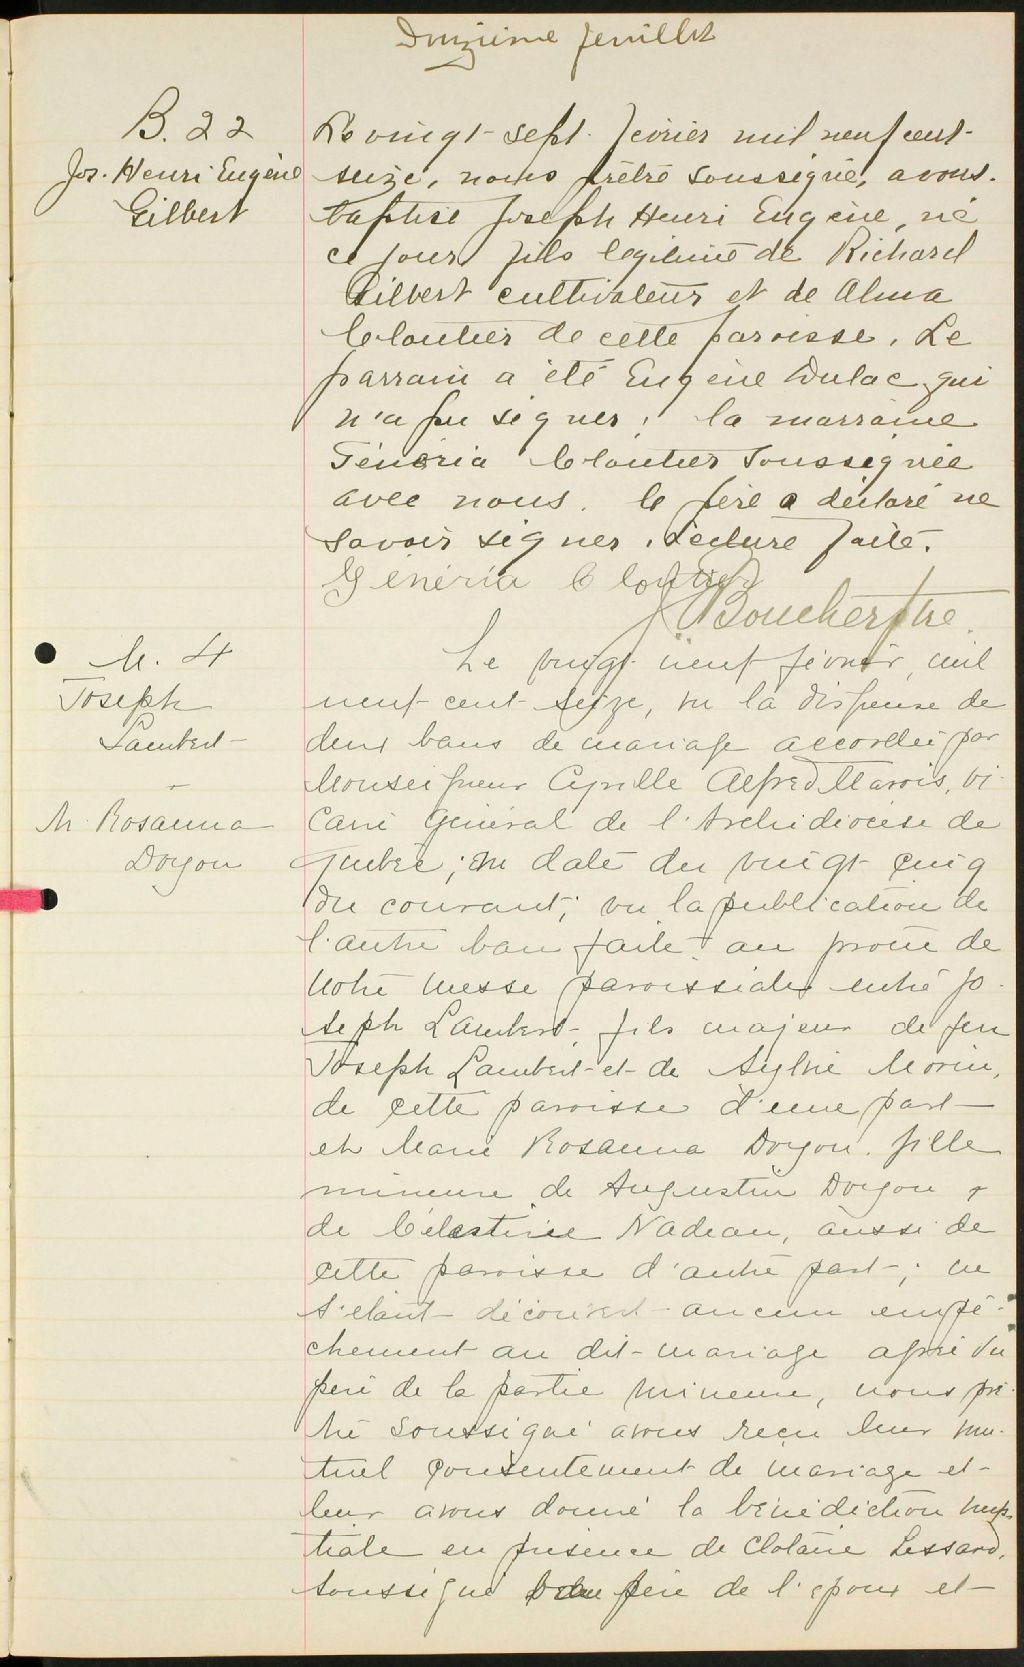 Douzième feuillet
B. 22
Jos. Henri Eugène
Gilbert
Le vingt-sept février mil neuf cent-
seize, nous prêtre soussigné, avons
baptisé Joseph Henri Eugène, né
ce jour, fils légitime de Richard
Gilbert cultivateur et de Alma
Cloutier de cette paroisse. Le
parrain a été Eugène Dulac qui
n'a pu signer, la marraine
Généria Cloutier soussignée
avec nous. le père a déclaré ne
savoir signer. Lecture faite.
Généria Cloutier
J Boucher ptre.
M. 4
Joseph
Lambert
M. Rosanna
Doyon
Le vingt neuf février, mil
neuf-cent-seize, vu la dispense de
deux bans de mariage accordée par
Monseigneur Cyrille Alfred Marois, vi-
caire général de l'Archidiocèse de
Québec; en date du vingt cinq
du courant; vu la publication de
l'autre ban faite au prône de
notre messe paroissiale entre Jo-
seph Lambert, fils majeur de feu
Joseph Lambert et de Sylvie Morin,
de cette paroisse d'une part
et Marie Rosanna Doyon, fille
mineure de Augustin Doyon &
de Célestine Nadeau, aussi de
cette paroisse d'autre part; ne
s'étant découvert aucun empê-
chement au dit mariage du
père de la partie mineure, nous prê-
tre soussigné avons reçu leur mu-
tuel consentement de mariage et
leur avons donné la bénédiction nup-
tiale en présence de Clotaire Lessard,
soussigné père de l'époux et